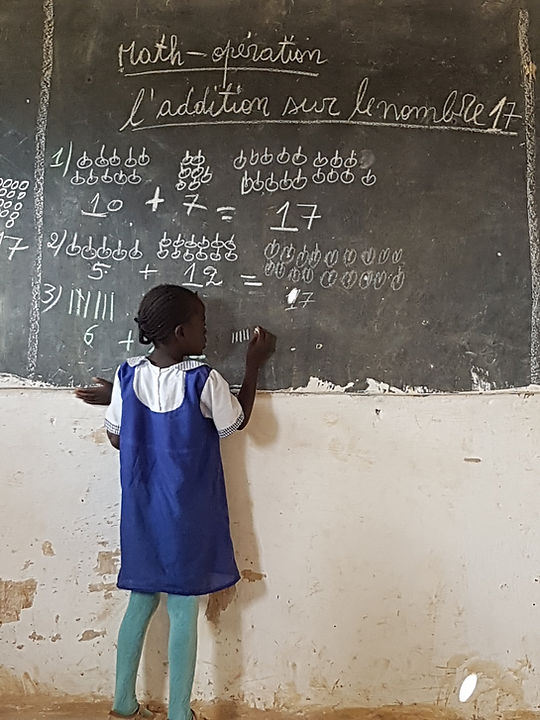 Math-opération
l'addition sur le nombre 17
1)
10 + 7 = 17
2)
5 + 12 = 17
3)
6 +
17